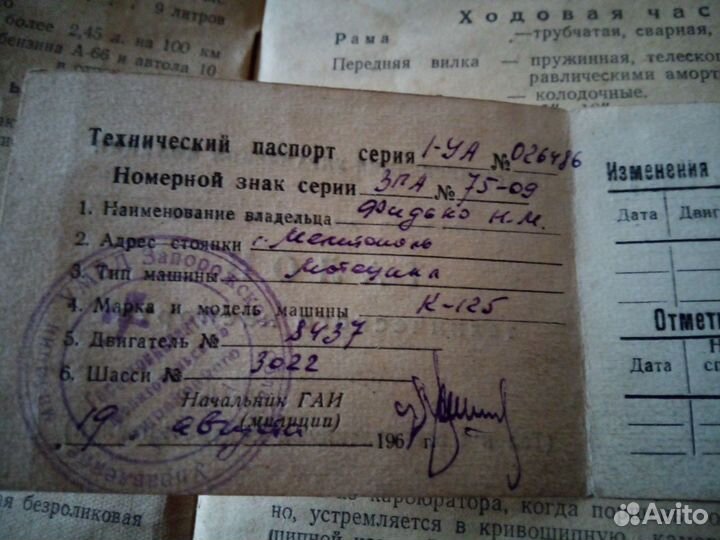 9 литров
более 2,45 л. на 100 км
бензина А-66 и автола 10
Ходовая час
Рама —трубчатая, сварная,
Передняя вилка — пружинная, телеско
равлическими аморт
— колодочные.
Технический паспорт серия 1-УА № 026486
Номерной знак серии ЗПА № 75-09
1. Наименование владельца Фидько Н.М.
2. Адрес стоянки г. Мелитополь
3. Тип машины Мотоцикл
4. Марка и модель машины К-125
5. Двигатель № 8437
6. Шасси № 3022
Начальник ГАИ
(милиции)
„19 августа 196 г.
Запорожско
Управление
Изменения
Дата Двиг
Отметк
Дата Н
сп
ая безроликовая
карбюратора, когда по
но, устремляется в кривошипную
Avito